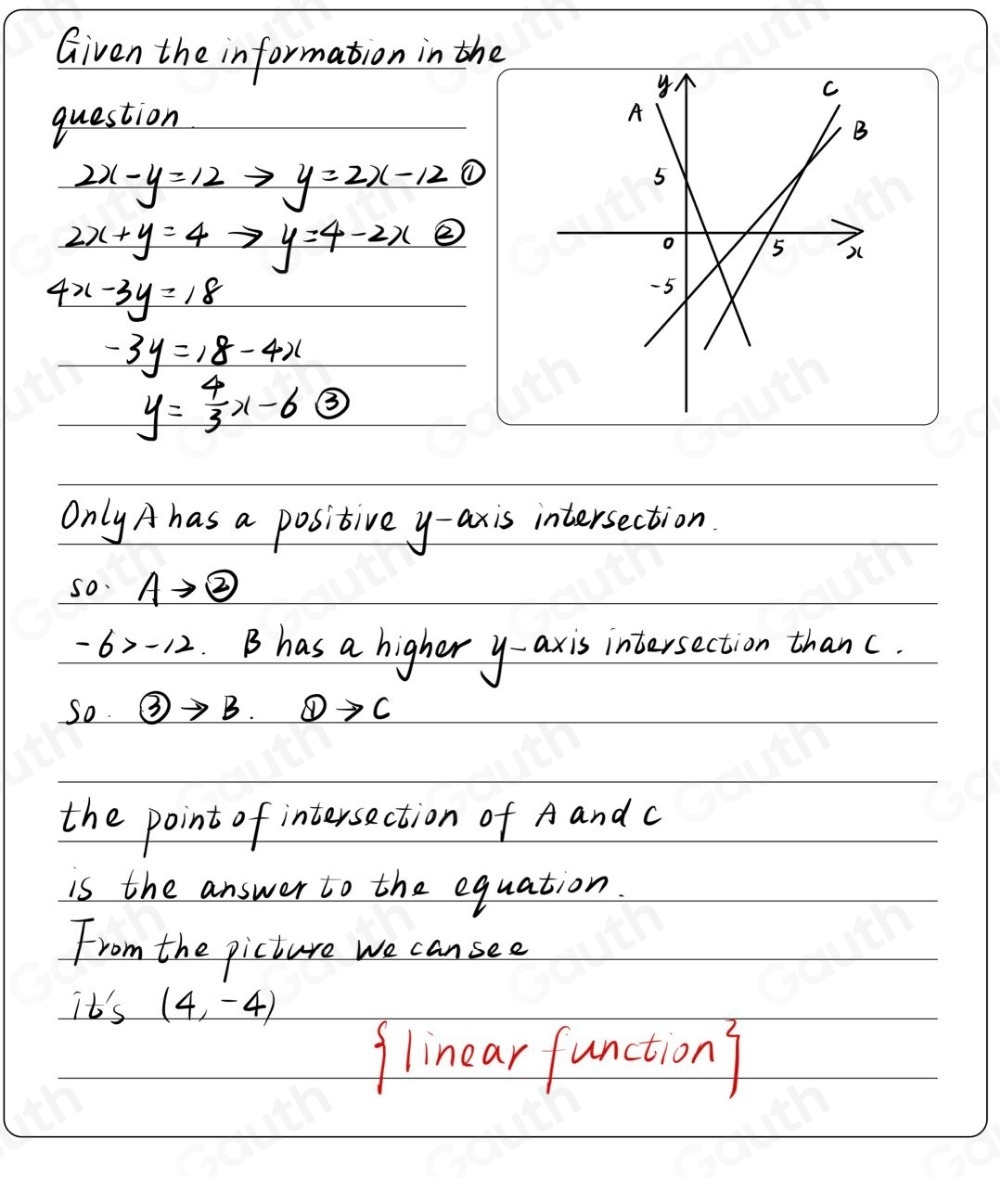 Given the information in the
question.
2x-y=12 → y=2x-12 ①
2x+y=4 → y=4-2x ②
4x-3y=18
-3y=18-4x
y=4/3x-6 ③
y
A
C
B
5
0
5
x
-5
Only A has a positive y-axis intersection.
so. A→②
-6>-12. B has a higher y-axis intersection than C.
So. ③→B. ①→C
the point of intersection of A and C
is the answer to the equation.
From the picture we can see
it's (4,-4)
{linear function}
Gauth